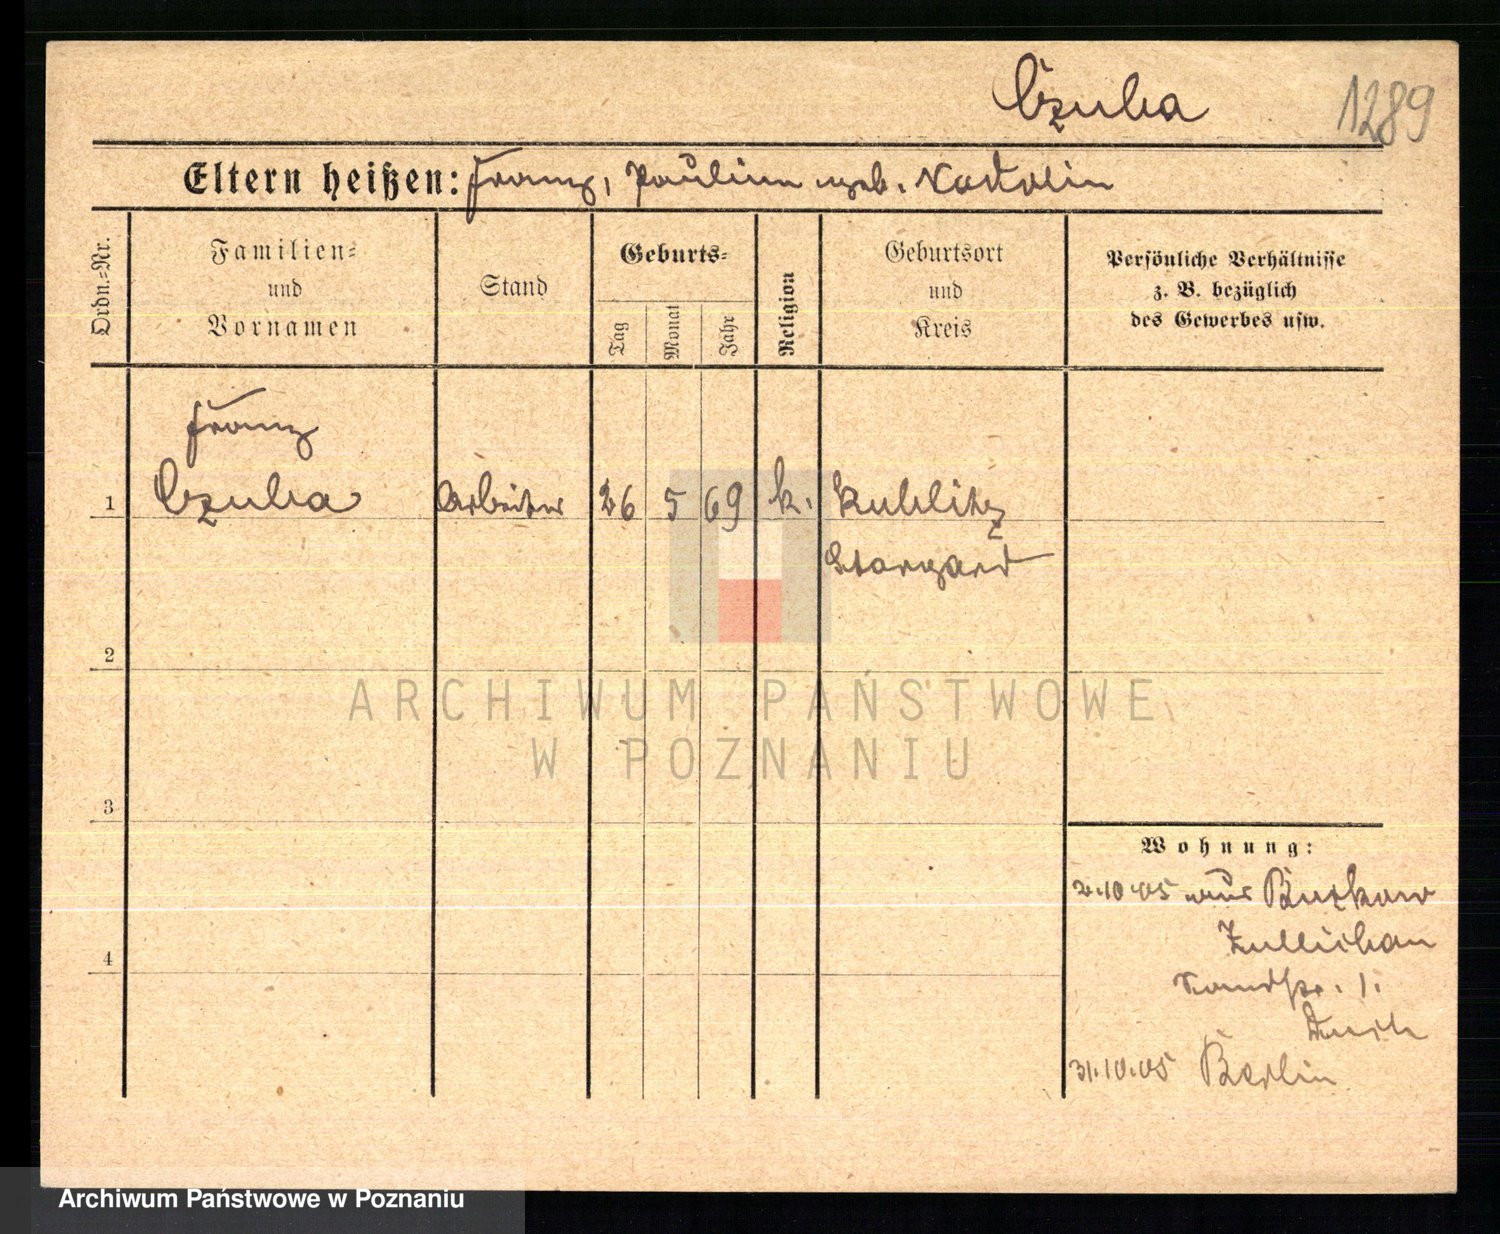 Czuba 1289
Eltern heißen: Franz, Paulina geb. Nadolin
Ordn.-Nr.
Familien-
und
Vornamen
Stand
Geburts-
Tag
Monat
Jahr
Religion
Geburtsort
und
Kreis
Persönliche Verhältnisse
z. B. bezüglich
des Gewerbes usw.
Franz
1 Czuba Arbeiter 26 5 69 k.
Stargard
2
ARCHIWUM PAŃSTWOWE
W POZNANIU
3
Wohnung:
2.10.05 aus
Züllichau
4
1.
31.10.05 Berlin
Archiwum Państwowe w Poznaniu